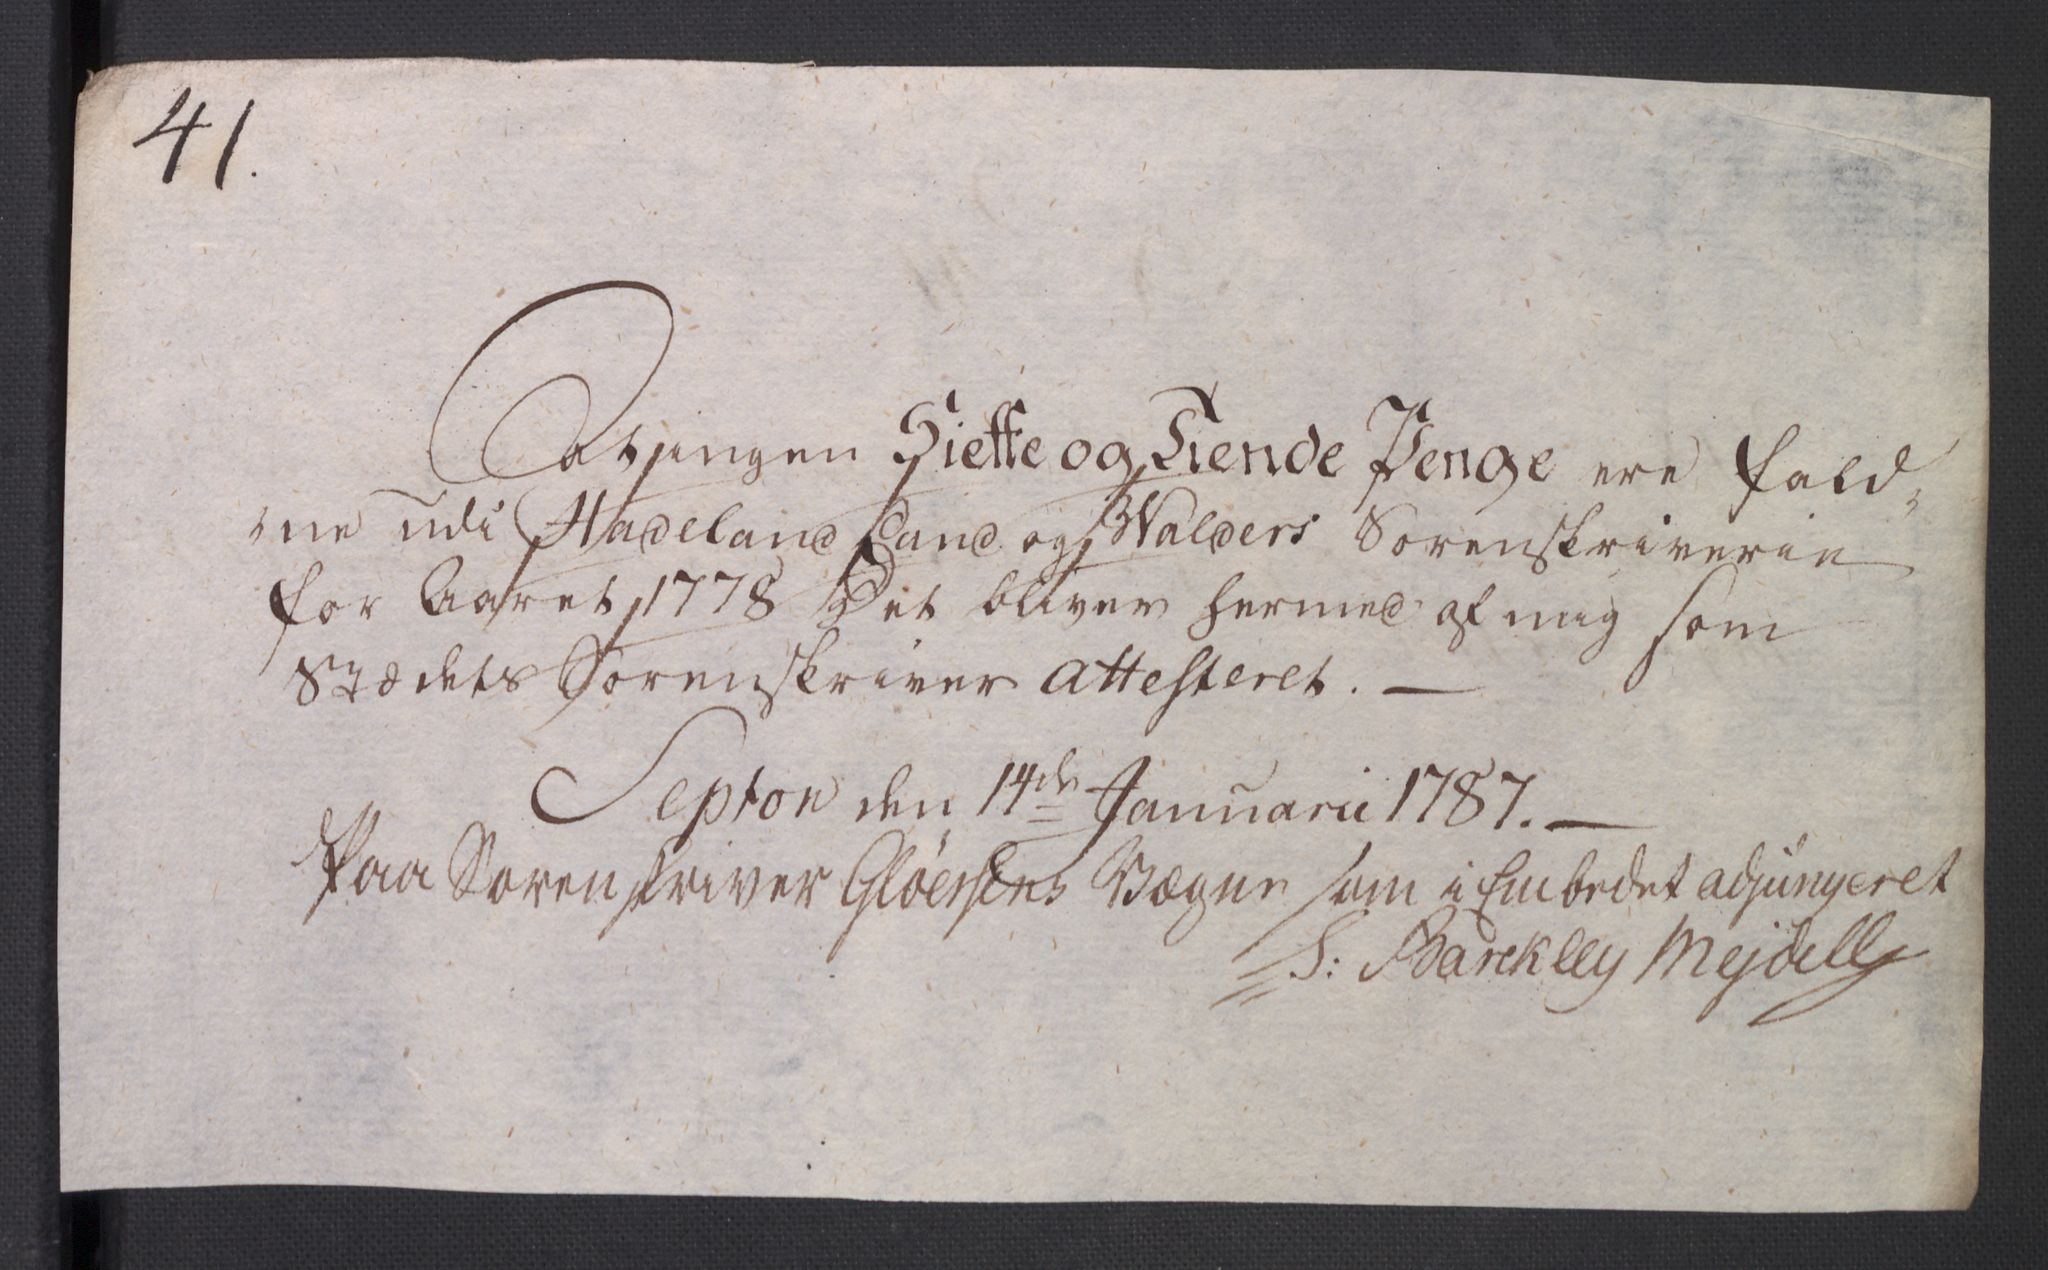 41.
At ingen Siette og Tiende Penge ere fald-
ne udi Hadeland Land og Walders Sorenskriverie
for Aaret 1778 Det bliver hermed af mig som
Stædets Sorenskriver attesteret. —
Septon den 14de Januarii 1787. —
Paa Sorenskriver Gløersens Vægne som i Embedet adjungeret
S: Barckley Mejdell